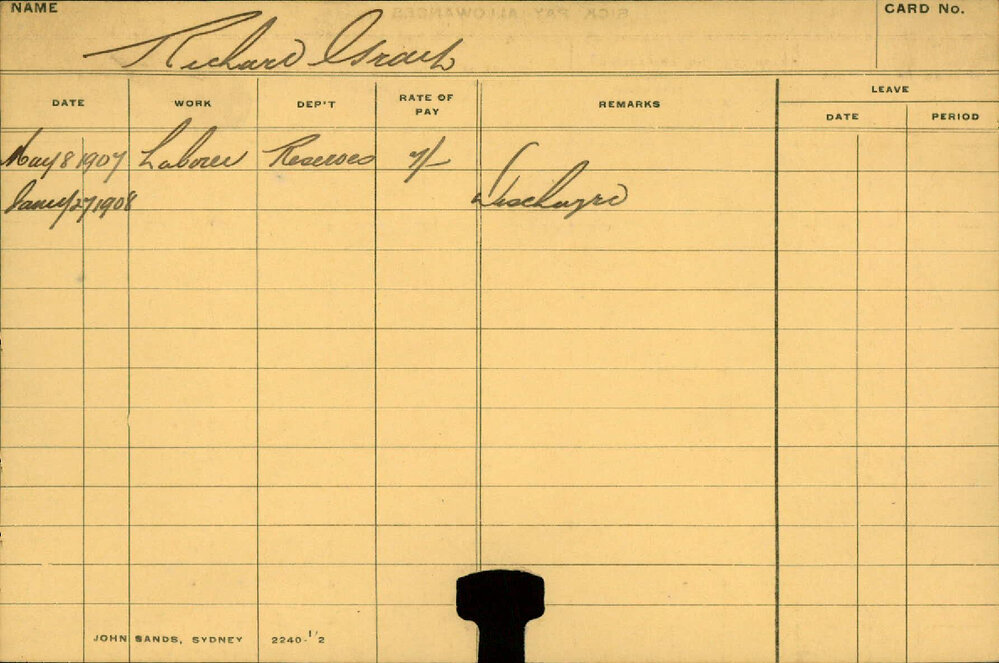 NAME
CARD No.
Richard
DATE WORK DEP'T RATE OF PAY REMARKS LEAVE
DATE PERIOD
May 8 1907 Laborer Reserves 7/-
Jany 27 1908 Discharged
JOHN SANDS, SYDNEY 2240-1/2